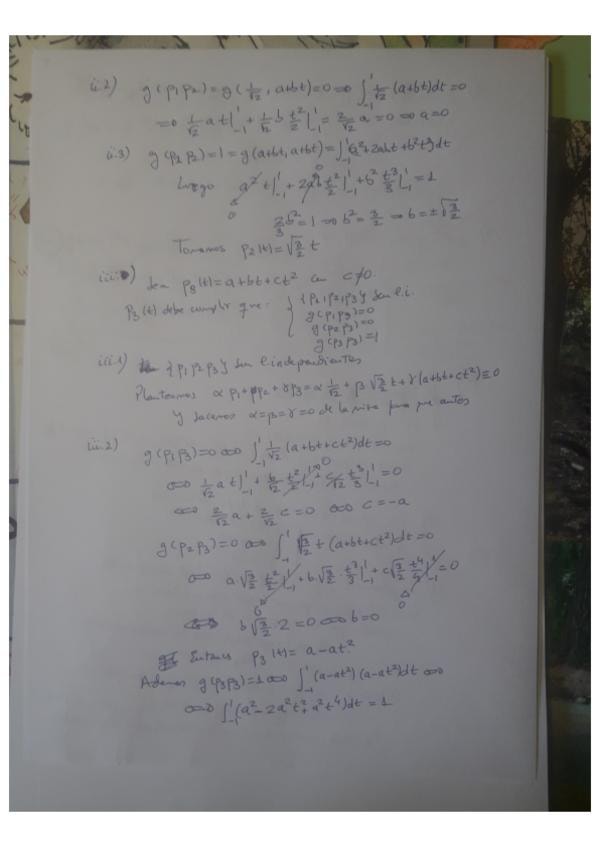 ii.2) g(p₁p₂)=g(1/√2, a+bt)=0 ⟺ ∫₋₁¹ 1/√2 (a+bt)dt=0
⟹ 1/√2 a t|₋₁¹ + 1/√2 b t²/2|₋₁¹ = 2/√2 a=0 ⟺ a=0
ii.3) g(p₂p₂)=1=g(a+bt, a+bt)=∫₋₁¹ a²+2abt+b²t²dt
Luego a² t|₋₁¹ + 2ab t²/2|₋₁¹ + b² t³/3|₋₁¹ = 1
0 0
2/3 b²=1 ⟹ b²=3/2 ⟹ b=±√3/2
Tomamos p₂(t)=√3/2 t
iii) Sea p₃(t)=a+bt+ct² con c≠0.
p₃(t) debe cumplir que: {p₁,p₂,p₃} son l.i.
g(p₁p₃)=0
g(p₂p₃)=0
g(p₃p₃)=1
iii.1) {p₁p₂p₃} son l.independientes
Planteamos αp₁+βp₂+γp₃=α 1/√2 + β√3/2 t+γ(a+bt+ct²)≡0
Y sacamos α=β=γ=0 de la misma forma que antes
iii.2) g(p₁p₃)=0 ⟺ ∫₋₁¹ 1/√2 (a+bt+ct²)dt=0
⟺ 1/√2 a t|₋₁¹ + b/√2 t²/2|₋₁¹ + c/√2 t³/3|₋₁¹ = 0
⟺ 2/√2 a + 2/√2 c=0 ⟺ c=-a
g(p₂p₃)=0 ⟺ ∫₋₁¹ √3/2 t (a+bt+ct²)dt=0
⟺ a√3/2 t²/2|₋₁¹ + b√3/2 t³/3|₋₁¹ + c√3/2 t⁴/4|₋₁¹ = 0
0 0
⟺ b√3/2 2=0 ⟺ b=0
Entonces p₃(t)= a-at²
Ademas g(p₃p₃)=1 ⟺ ∫₋₁¹ (a-at²)(a-at²)dt ⟺
⟺ ∫₋₁¹ (a²-2a²t²+a²t⁴)dt=1